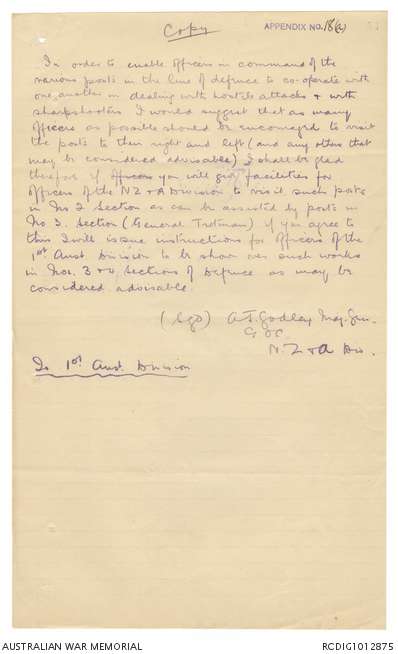 Copy
APPENDIX NO. 18(a)
In order to enable Officers in command of the
various posts in the line of defence to co-operate with
one another in dealing with hostile attacks & with
sharpshooters I would suggest that as many
Officers as possible should be encouraged to visit
the posts to their right and left (and any others that
may be considered advisable) I shall be glad
therefore if Officers you will give facilities for
Officers of the N Z & A Division to visit such posts
in No 2 Section as can be assisted by posts in
No 3. Section (General Trotman) if you agree to
this I will issue instructions for Officers of the
1st Aust Division to be shown over such works
in Nos. 3 & 4 Sections of Defence as may be
considered advisable.
(Sgd) A J Godley Maj. Gen.
G O C.
N. Z & A Div.
To 1st Aust. Division
AUSTRALIAN WAR MEMORIAL
RCDIG1012875